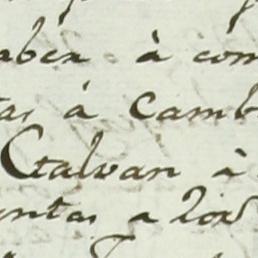 aber à com
tas à camb
Ctalvan à
untas a Lord